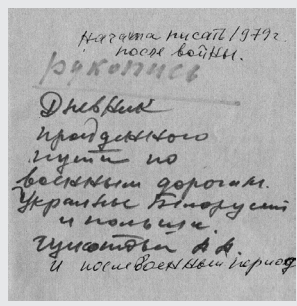 начата писать 1979 г.
после войны.
рукопись
Дневник
пройденного
пути по
военным дорогам.
Украины Белорусии
и польши.
А. А.
и послевоенный период